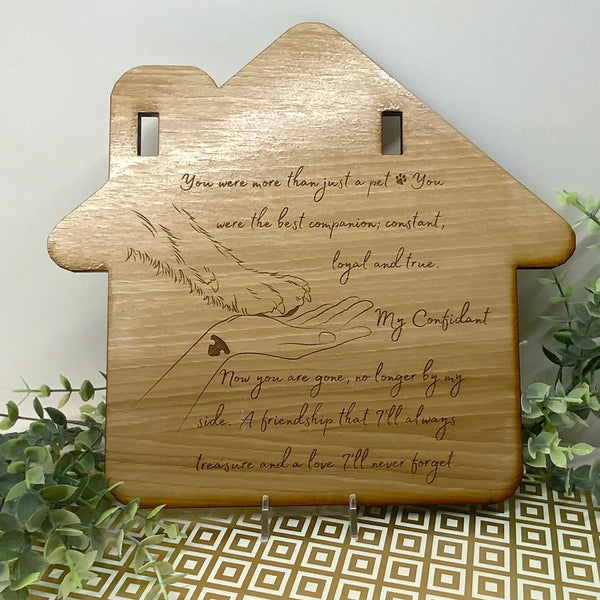 You were more than just a pet 🐾 You
were the best companion; constant,
loyal and true.
My Confidant
Now you are gone, no longer by my
side. A friendship that I'll always
treasure and a love I'll never forget.